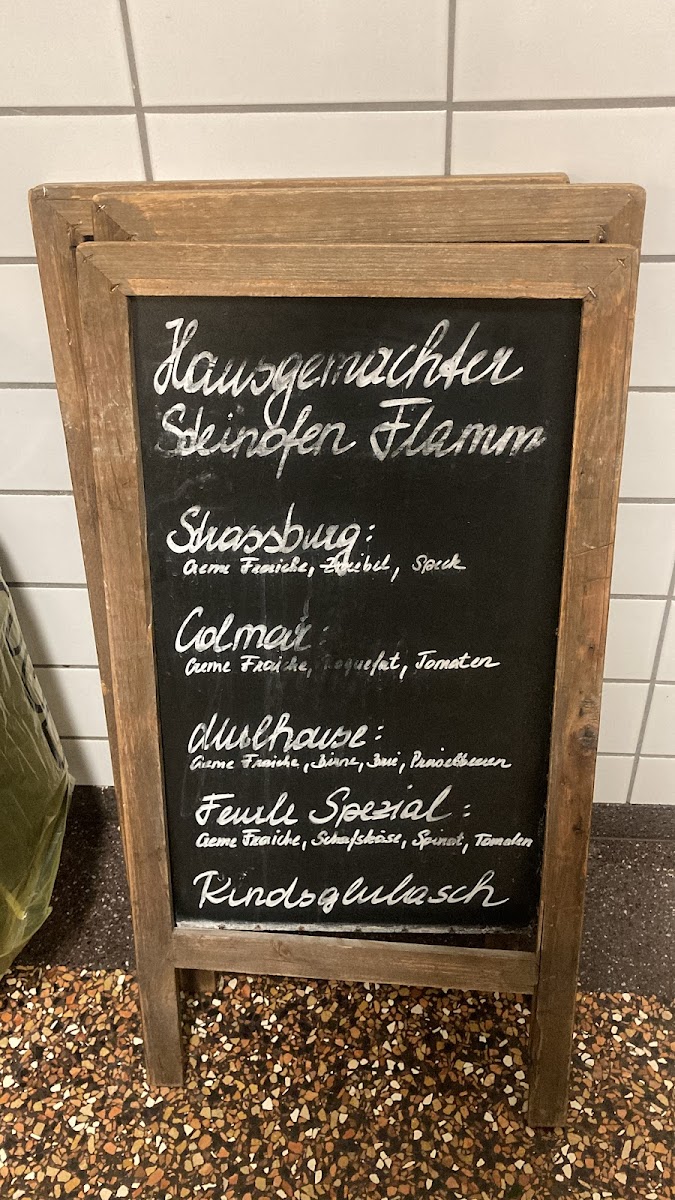 Hausgemachter
Steinofen Flamm
Strassburg:
Creme Fraiche, Zwiebel, Speck
Colmar:
Creme Fraiche, Roquefort, Tomaten
Mulhouse:
Creme Fraiche, Birne, Brie, Preiselbeeren
Feuerle Spezial:
Creme Fraiche, Schafskäse, Spinat, Tomaten
Rindsglulasch